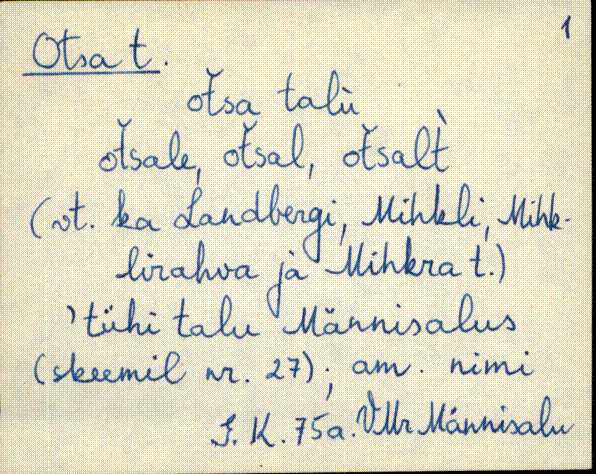 1
Otsa t.
oťsa talù
oťsale, oťsal, oťsalt̀
(vt. ka Landbergi, Mihkli, Mihk-
lirahva jà Mihkra t.)
'tühi talu Männisalus
(skeemil nr. 27); am. nimi
J. K. 75a. VMr Männisalu